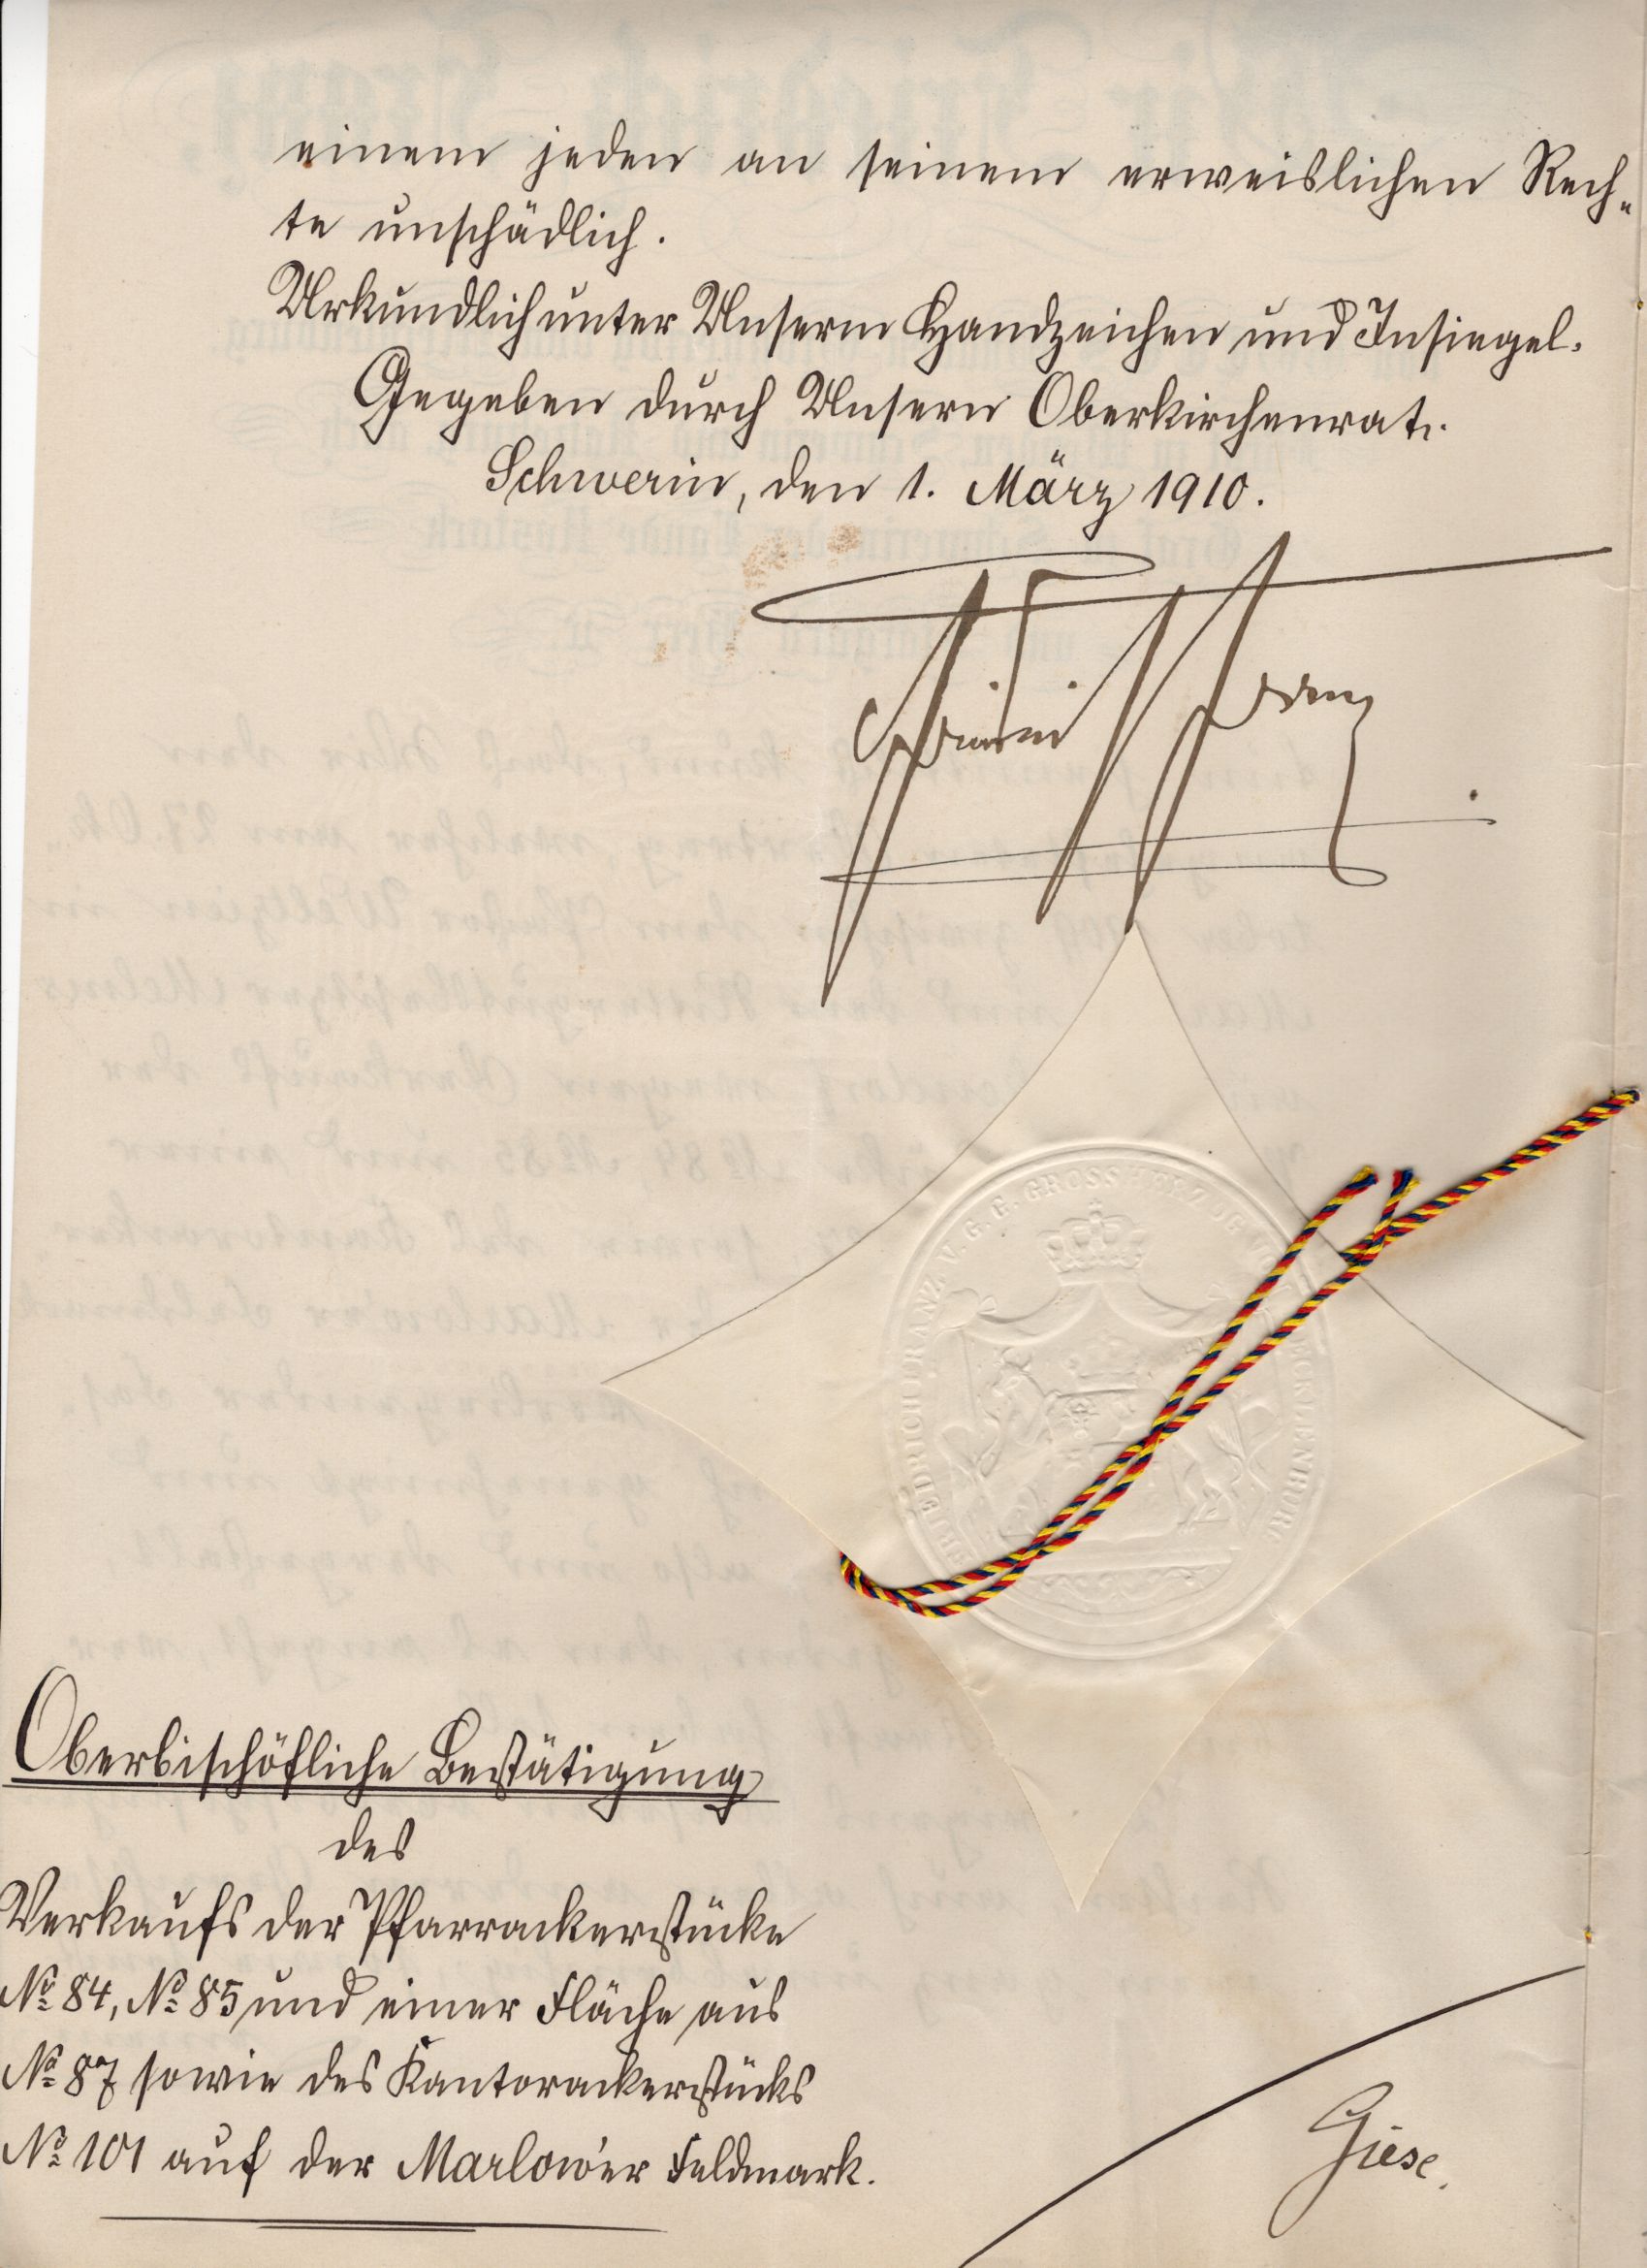 einem jeden an seinem erweislichen Rech„
te unschädlich.
Urkundlich unter Unserm Handzeichen und Insiegel.
Gegeben durch Unsern Oberkirchenrat.
Schwerin, den 1. März 1910.
Friedrich Franz
FRIEDRICH FRANZ V. G. G. GROSSHERZOG V. MECKLENBURG
Oberbischöfliche Bestätigung
des
Verkaufs der Pfarrackerstücke
No 84, No 85 und einer Fläche aus
No 87 sowie des Kantorackerstücks
No 101 auf der Marlow'er Feldmark.
Giese.